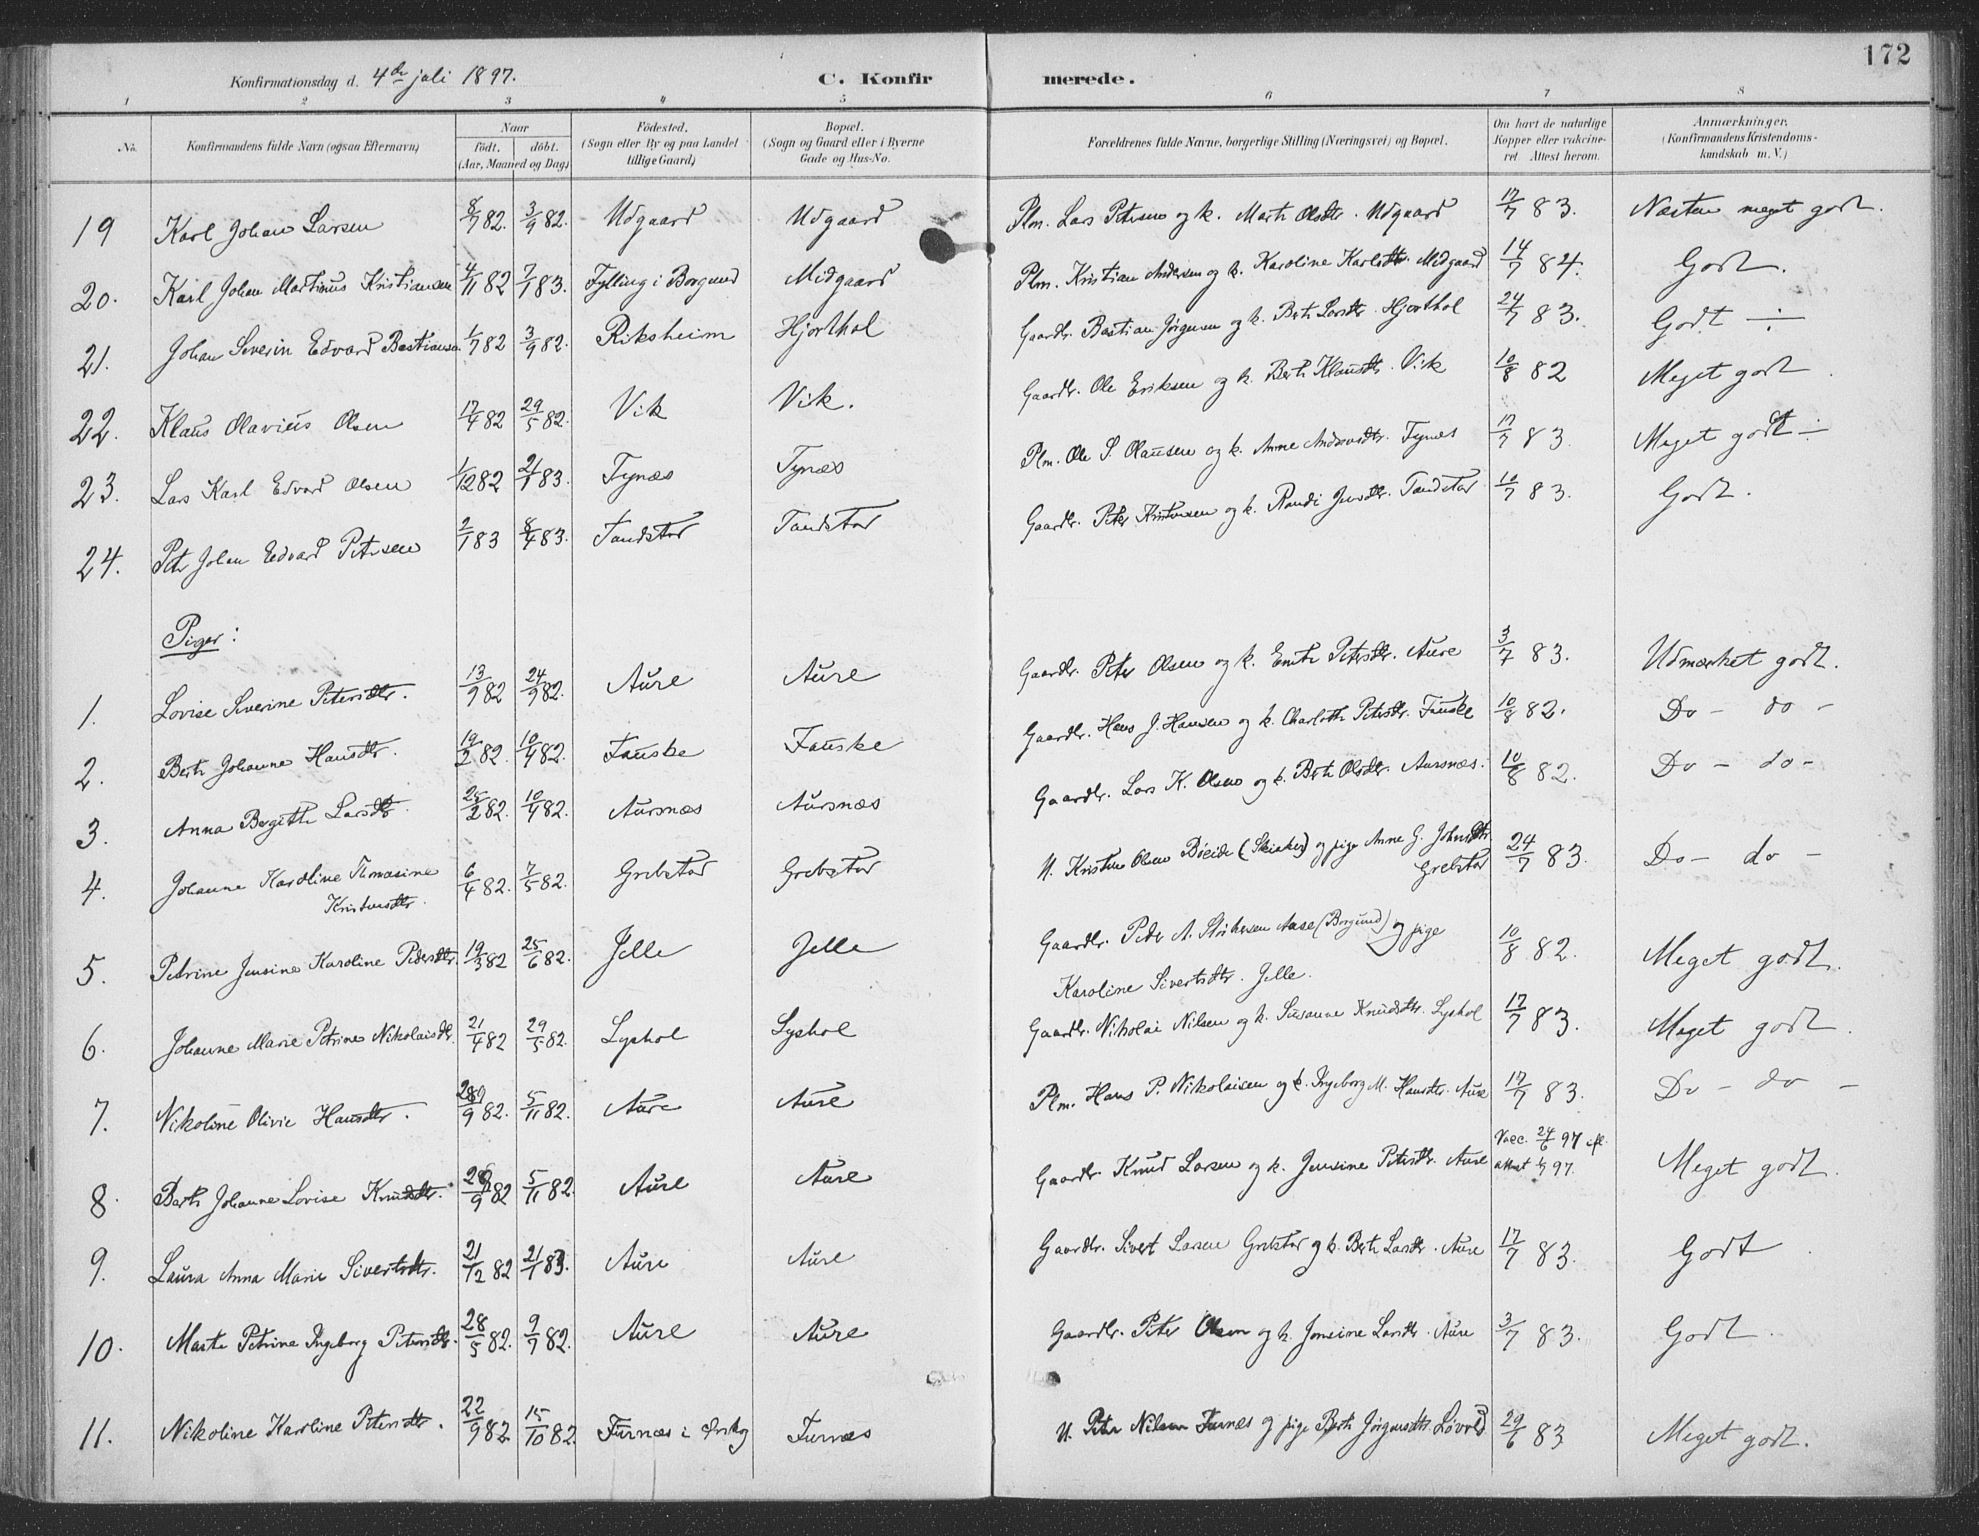 172
Konfirmationsdag d. 4de juli 1897. C. Konfir merede.
1 2 3 4 5 6 7 8
No. Konfirmandens fulde Navn (ogsaa Efternavn) Naar født. døbt. (Aar, Maaned og Dag) Fødested. (Sogn eller By og paa Landet tillige Gaard) Bopæl. (Sogn og Gaard eller i Byerne Gade og Hus-No. Forældrenes fulde Navne, borgerlige Stilling (Næringsvei) og Bopæl. Om havt de naturlige Kopper eller vakcineret. Attest herom. Anmærkninger. (Konfirmandens Kristendomskundskab m. V.)
19 Karl Johan Larsen 8/7 82. 3/9 82. Udgaard Udgaard Plm. Lars Petersen og k. Marte Olsdtr. Udgaard 17/7 83. Næsten meget godt.
20. Karl Johan Martinus Kristiansen 4/11 82 7/1 83. Fylling i Borgund Midgaard Plm. Kristian Andersen og k. Karoline Karlsdtr. Midgaard 14/7 84. Godt.
21. Johan Severin Edvard Bastiansen 1/7 82 3/9 82. Riksheim Hjorthol Gaardbr. Bastian Jørgensen og k. Berte Larsdtr. Hjorthol 24/7 83. Godt ÷
22. Klaus Olavius Olsen 17/4 82 29/5 82. Vik Vik. Gaardbr. Ole Eriksen og k. Berte Klausdtr. Vik 10/8 82 Meget godt.
23. Lars Karl Edvard Olsen 1/12 82 21/1 83. Tynæs Tynæs Plm. Ole S. Olausen og k. Anne Andersdtr. Tynæs 17/7 83. Meget godt ÷
24. Peter Johan Edvard Petersen 2/1 83 8/4 83. Tandstad Tandstad Gaardbr. Peter Kristensen og k. Randi Jensdtr. Tandstad 10/7 83. Godt.
Piger:
1. Lovise Severine Petersdtr. 13/9 82 24/9 82. Aure Aure Gaardbr. Peter Olsen og k. Petersdtr. Aure 3/7 83. Udmærket godt.
2. Berte Johanne Hansdtr. 19/2 82. 10/4 82. Fauske Fauske Gaardbr. Hans J. Hansen og k. Charlotte Petersdtr. Fauske 10/8 82. Do - do -
3. Anna Bergitte Larsdtr. 25/2 82. 10/4 82. Aursnæs Aursnæs Gaardbr. Lars K. Olsen og k. Berte Olsdtr. Aursnæs. 10/8 82. Do - do -
4. Johanne Karoline Tomasine Kristensdtr. 6/4 82. 7/5 82. Grebstad Grebstad U. Kristen Olsen Bøeide og pige Anne G. Johnsdtr. Grebstad 24/7 83. Do - do -
5. Petrine Jensine Karoline Pedersdtr. 19/3 82 25/6 82. Jelle Jelle Gaardbr. Peder A. Aase (Borgund) og pige
Karoline Sivertsdtr. Jelle. 10/8 82. Meget godt.
6. Johanne Marie Petrine Nikolaisdtr. 21/4 82 29/5 82. Lyshol Lyshol Gaardbr. Nikolai Nilsen og k. Susanne Knudsdtr. Lyshol 17/7 83. Meget godt.
7. Nikoline Olivie Hansdtr. /9 82. 5/11 82. Aure Aure Plm. Hans P. Nikolaisen og k. Ingeborg M. Hansdtr. Aure 17/7 83. Do - do -
8. Berte Johanne Lovise Knudsdtr. /9 82 5/11 82. Aure Aure Gaardbr. Knud Larsen og k. Jensine Petersdtr. Aure Vacc. 24/6 97 attest 97. Meget godt.
9. Laura Anna Marie Sivertsdtr. 21/12 82 21/1 83. Aure Aure Gaardbr. Sivert Larsen Grebstad og k. Berte Larsdtr. Aure 17/7 83. Godt.
10. Marte Petrine Ingeborg Petersdtr. 28/5 82. 9/7 82. Aure Aure Gaardbr. Peter Olsen og k. Jensine Larsdtr. Aure 3/7 83. Godt.
11. Nikoline Karoline Petersdtr. 22/9 82. 15/10 82. Furnæs i Ørskog Furnæs U. Peter Nilsen Furnæs og pige Berte Jørgensdtr. Løvold 29/6 83 Meget godt.